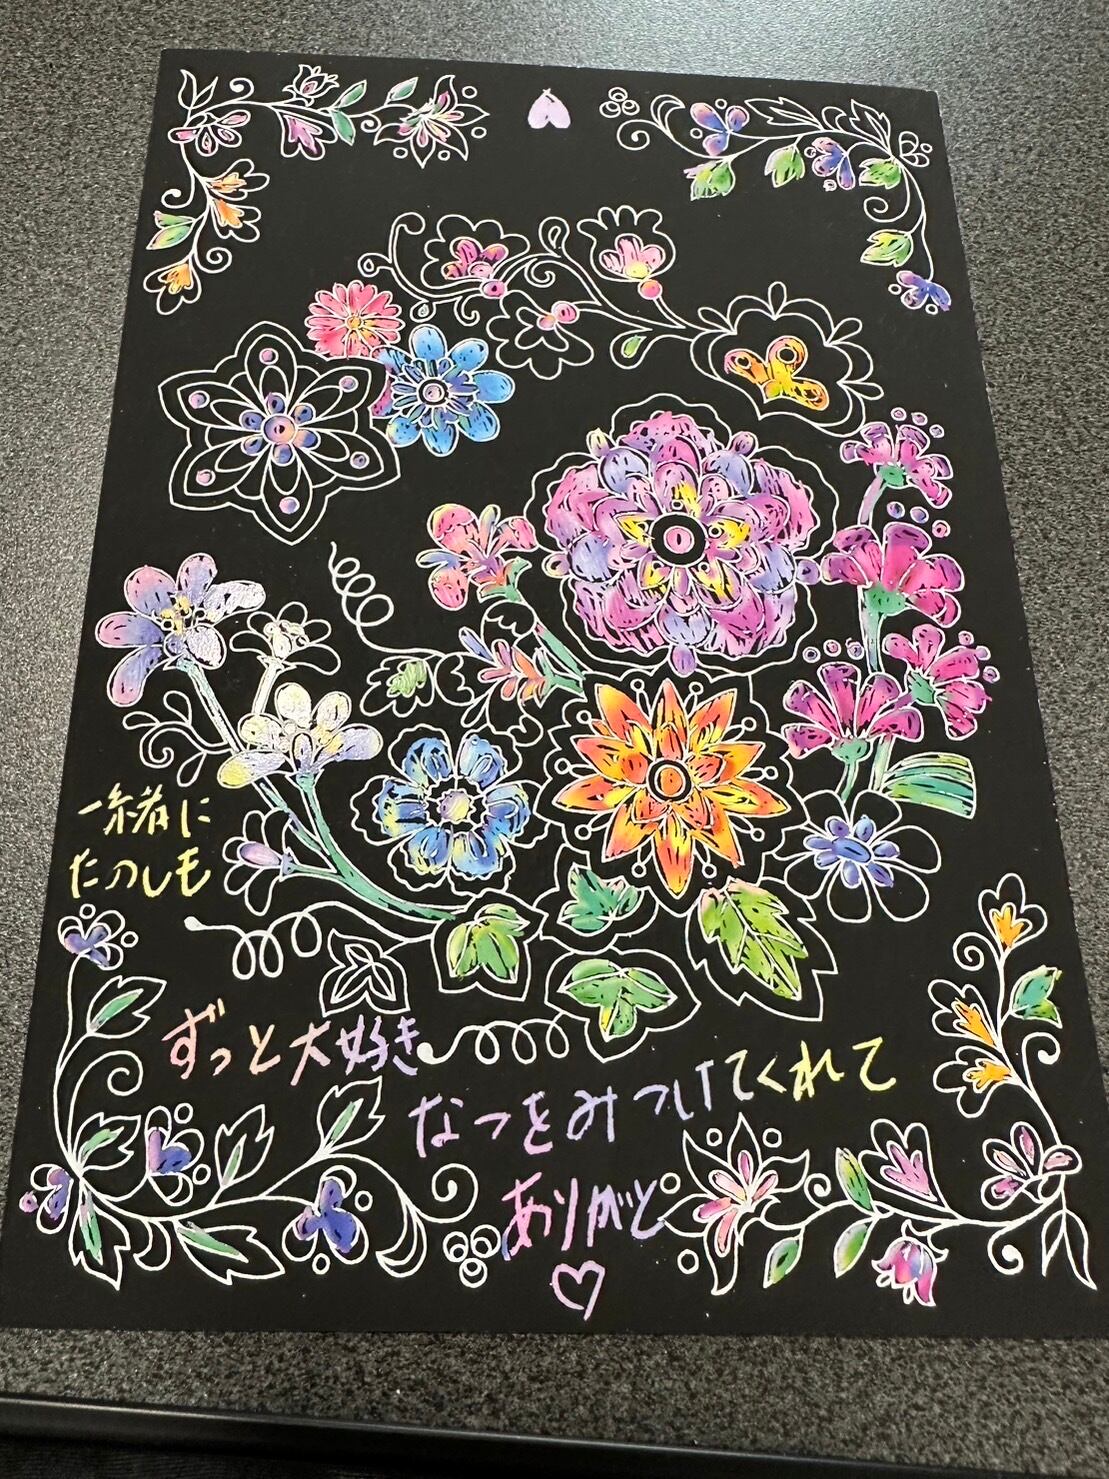 一緒に
たのしも
ずっと大好き
なつをみつけてくれて
ありがと